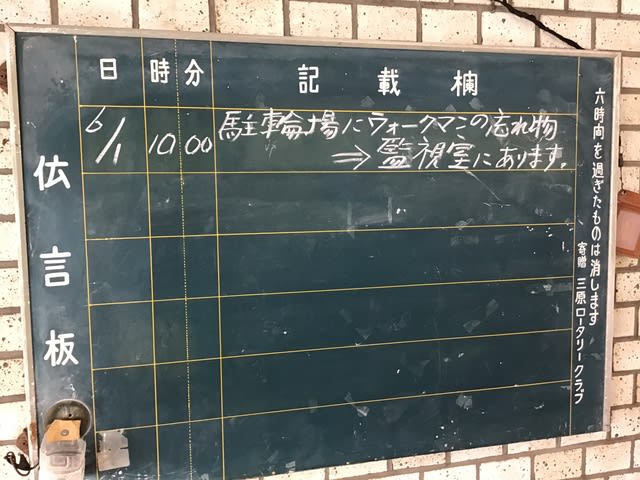 伝言板
日 時 分 記載欄
6/1 10 00 駐輪場にウォークマンの忘れ物
⇒ 監視室にあります。
六時間を過ぎたものは消します
寄贈 三原ロータリークラブ